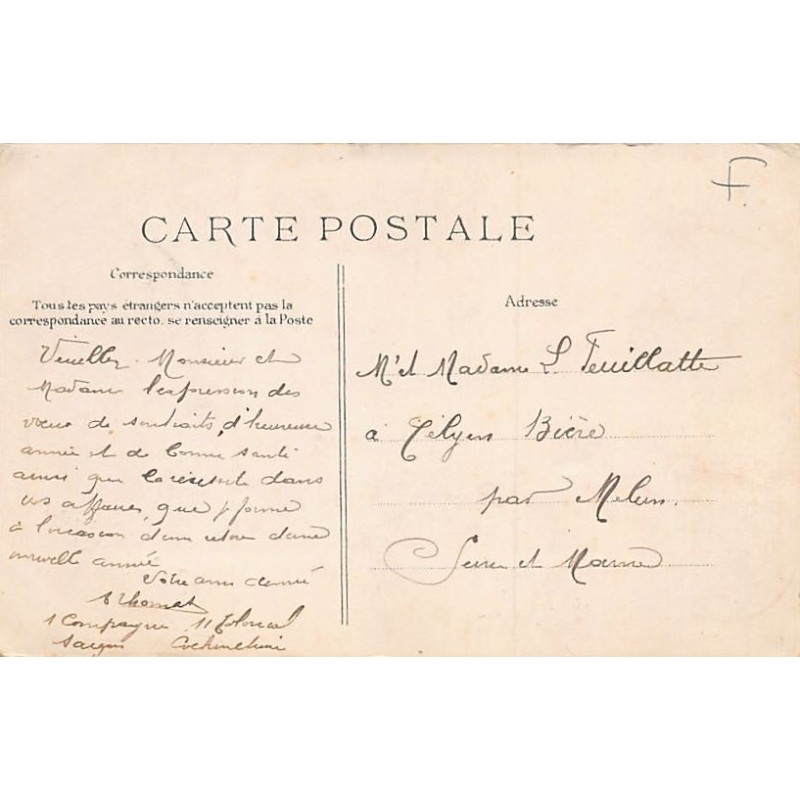 F.
CARTE POSTALE
Correspondance
Tous les pays étrangers n'acceptent pas la
correspondance au recto. se renseigner à la Poste
Veuillez Monsieur et
Madame l'expression des
vœux de souhaits d'heureuse
année et de bonne santé
ainsi que la réussite dans
vos affaires que je forme
à l'occasion d'un retour d'une
nouvelle année
Votre ami
Thomas
1 Compagnie 11 Colonial
Saigon Cochinchine
Adresse
Mr et Madame L Feuillatte
à Bière
par Melun.
Seine et Marne